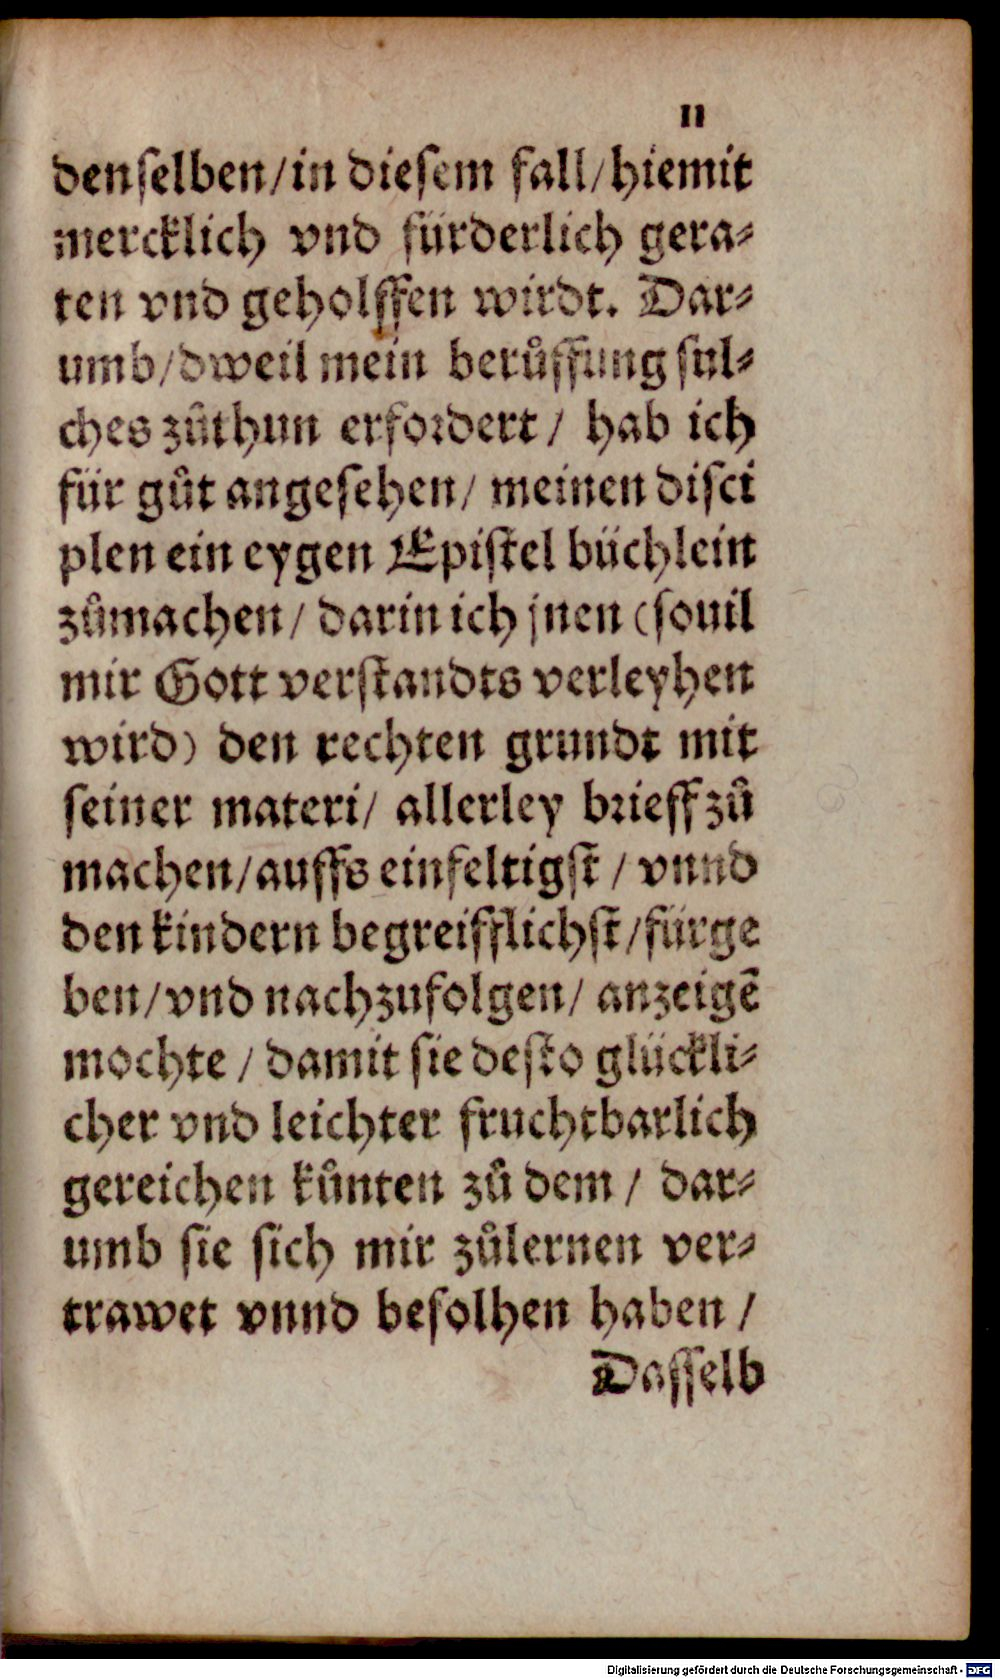 11
denſelben/in dieſem fall/hiemit
mercklich vnd fürderlich gera⸗
ten vnd geholffen wirdt. Dar⸗
umb/dweil mein berůffung sul⸗
ches zůthun erfordert / hab ich
für gůt angeſehen/ meinen diſci
plen ein eygen Epiſtel büchlein
zůmachen/ darin ich jnen (ſouil
mir Gott verſtandts verleyhen
wird) den rechten grundt mit
ſeiner materi/ allerley brieff zů
machen/auffs einfeltigſt / vnnd
den kindern begreifflichſt/fürge
ben/vnd nachzufolgen/ anzeigē
mochte / damit ſie deſto glückli⸗
cher vnd leichter fruchtbarlich
gereichen kůnten zů dem / dar⸗
umb ſie ſich mir zůlernen ver⸗
trawet vnnd befolhen haben /
Daſſelb
Digitalisierung gefördert durch die Deutsche Forschungsgemeinschaft - DFG